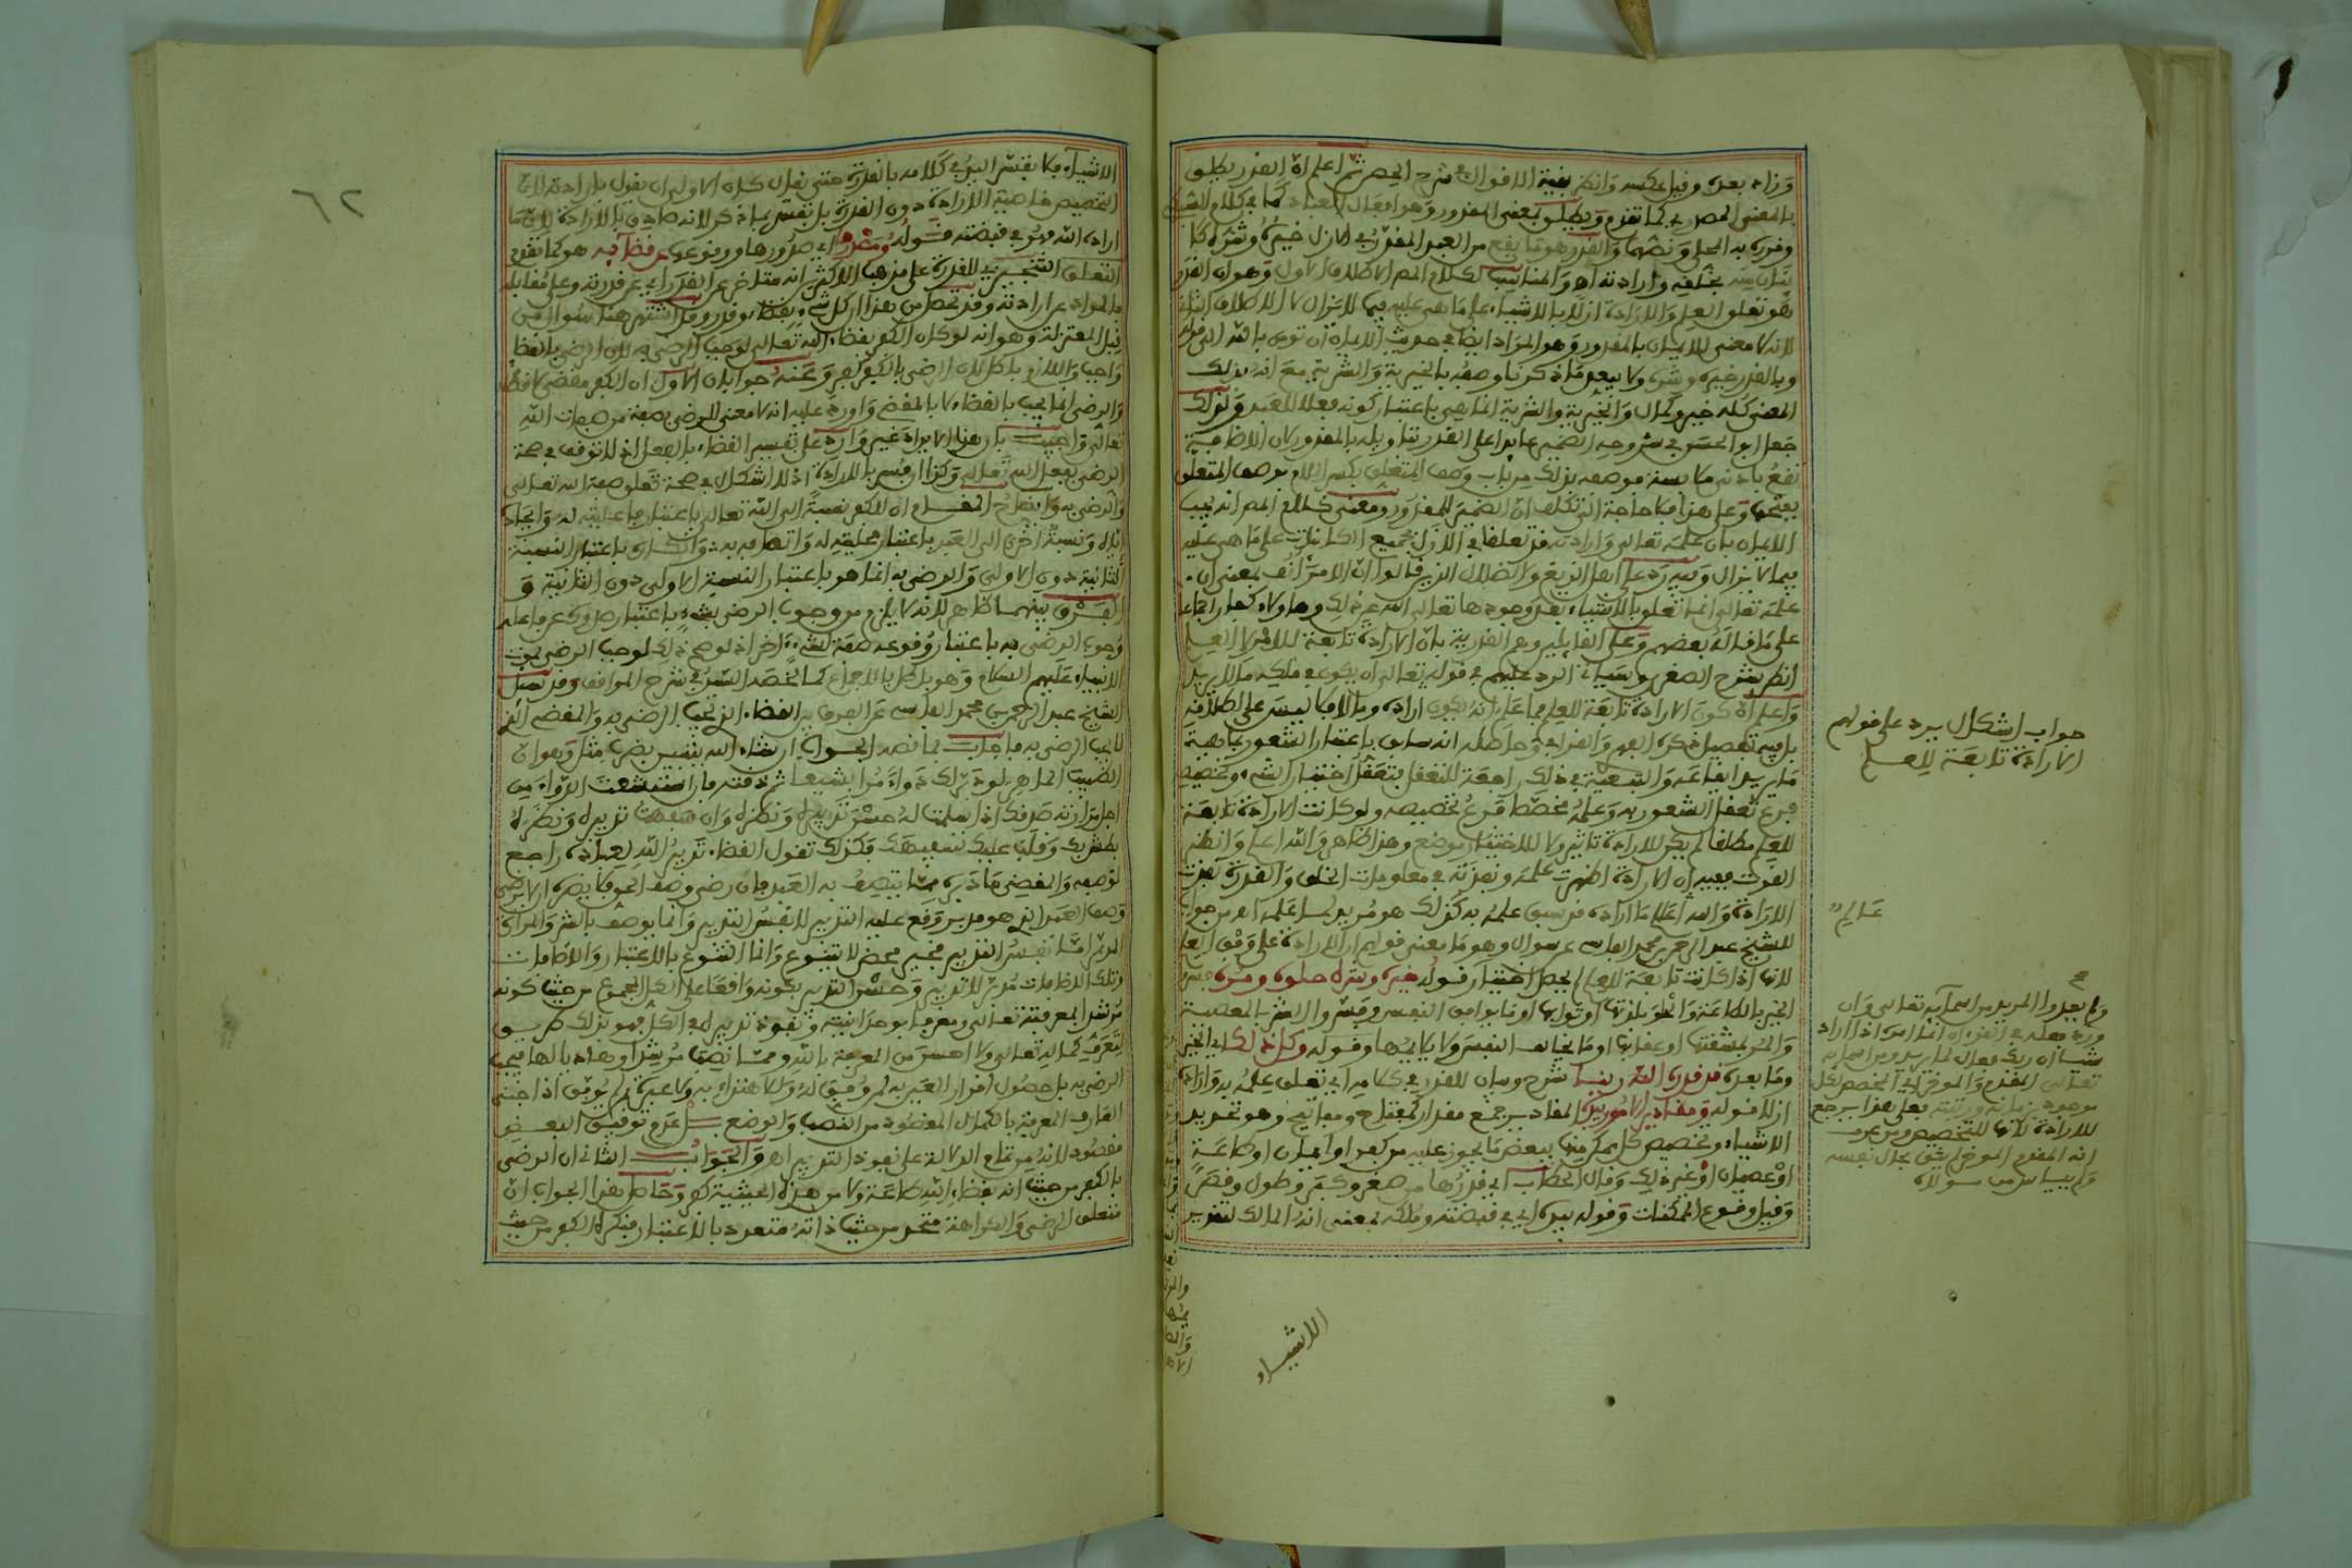 وزاد بعده وقيل عكسه وانظر بقية الاقوال في شرح الحصن ثم اعلم ان القدر يطلق
بالمعنى المصدري كما تقدم ويطلق بمعنى المقدور وهو افعال العباد كما في كلام الشيخ
وقدره به الحل ونصها والقدر هو ما يقع من العبد المقدر في الازل خيره وشره كا
بخلقه وارادته اه والمناسب لكلام المص الاطلاق الاول وهو ان القدر
هو تعلق العلم والارادة ازلا بالاشياء على ما هي عليه فيما لا يزال لا الاطلاق الثاني
لانه لا معنى للايمان بالمقدور وهو المراد ايضا في حديث الايمان ان تومن بالله الى قوله
وبالقدر خيره وشره ولا يبعد ما ذكرنا وصفه بالخيرية والشرية مع انه بذلك
المعنى كله خير وكمال والخيرية والشرية انما هي باعتبار كونه فعلا للعبد ولذلك
جعل ابو الحسن في شروحه الضمير عائدا على القدر بتاويله بالمقدور لان الاضافة
تقع بادنى ملابسة فوصفه بذلك من باب وصف المتعلق بكسر اللام بوصف المتعلق
بفتحها وعلى هذا فلا حاجة الى تكلف ان الضمير للمقدور ومعنى كلام المص انه يجب
الايمان بان علمه تعالى وارادته قد تعلقا في الازل بجميع الكائنات على ما هي عليه
فيما لا يزال وفيه رد على اهل الزيغ والضلال الذين قالوا ان الامر انف بمعنى ان
علمه تعالى انما تعلق بالاشياء بعد وجودها تعالى الله عن ذلك وهاولاء كفار اجماعا
على ما قاله بعضهم وعلى القائلين وهم القدرية بان الارادة تابعة للامر لا للعلم
انظر شرح الصغرى وسياتي الرد عليهم في قوله تعالى ان يكون في ملكه ما لا يريد
واعلم ان كون الارادة تابعة للعلم فما علم انه يكون اراده وما لا فلا ليس على اطلاقه
بل فيه تفصيل ذكره الفهري والقرافي وحاصله انه سابق باعتبار الشعور بماهية
ما يريد ايقاعه والتبعية في ذلك راجعة للتعقل بتعقل اختيار الشيء وتخصيصه
فرع تعقل الشعور به وعلمه مخصصا فرع تخصيصه ولو كانت الارادة تابعة
للعلم مطلقا لم يكن للارادة تاثير ولا للاختيار موضع وهذا ظاهر والله اعلم وانظر
القوت ففيه ان الارادة اظهرت علمه ونفذته في معلومات الخلق والقدرة نفذت
الارادة والله اعلم ما اراده قد سبق علمه به كذلك هو مريد لما علمه اه من جواب
للشيخ عبد الرحمن بن محمد الفاسي عن سوال وهو ما معنى قولهم ان الارادة على وفق العلم
لانها اذا كانت تابعة للعلم لم يحصل اختيار قوله خيره وشره حلوه ومره فسر
الخير بالطاعة والحلو بلذتها او ثوابها او بما يوافق النفس وفسر الشر بالمعصية
والمر بمشقتها او عقابها او ما يخالف النفس ولا يلائمها وقوله وكل ذلك اي الخير
وما بعده قد قدره الله ربنا شرح وبيان للقدر في كلامه اي تعلق علمه به وارادته
ازلا قوله ومقادير الامور بيده المقادير جمع مقدار كمفتاح ومفاتيح وهو تقدير
الاشياء وتخصيص كل ممكن منها ببعض ما يجوز عليه من كفر او ايمان او طاعة
او عصيان او غير ذلك وقال الحطاب اي قدرها من صغر وكبر وطول وقصر
وقيل وقوع الممكنات وقوله بيده اي في قبضته وملكه بمعنى انه المالك لتقدير
الاشياء
جواب اشكال يرد على قولهم
الارادة تابعة للعلم
عالم
ولم يعدوا المريد من اسمائه تعالى وان
ورد فعله في القرءان انما امره اذا اراد
شيئا ان ربك فعال لما يريد ومن اسمائه
تعالى المقدم والموخر اي المخصص لكل
موجود بزمانه ورتبته فعلى هذا يرجع
للارادة لانها للتخصيص ومن عرف
انه المقدم الموخر لم يثق بحال نفسه
ولم يياس من سواه
٦٢
الاشياء فلا يفسر اليد في كلامه بالقدرة حتى يقال كان الاولى ان يقول بارادته لان
التخصيص خاصية الارادة دون القدرة بل تفسر بما ذكر لانه صادق بالارادة لان ما
اراد الله فهو في قبضته قوله ومصدرها اي صدورها ووقوعها عن قضائه هو كما تقدم
التعلق التنجيزي للقدرة على مذهب الاكثر انه متاخر عن القدر اي عن قدرته وعلى مقابله
فالمراد عن ارادته وقد تحصل من هذا ان كل شيء بقضاء وقدر وقد اشتهر هنا سوال من
قبل المعتزلة وهو انه لو كان الكفر بقضاء الله تعالى لوجب الرضى به لان الرضى بالقضا
واجب واللازم باطل لان الرضى بالكفر كفر وعنه جوابان الاول ان الكفر مقضى لا قضا
والرضى انما يجب بالقضاء لا بالمقضي واورد عليه انه لا معنى للرضى بصفة من صفات الله
تعالى واجيب بان هذا الايراد غير وارد على تفسير القضاء بالفعل اذ لا توقف في صحة
الرضى بفعل الله تعالى وكذا ان فسر بالارادة اذ لا اشكال في صحة تعلق صفة الله تعالى
والرضى به وايضاح المقام ان للكفر نسبة الى الله تعالى باعتبار فاعليته له وايجاده
اياه ونسبة اخرى الى العبد باعتبار محليته له واتصافه به وانكاره باعتبار النسبة
الثانية دون الاولى والرضى به انما هو باعتبار النسبة الاولى دون الثانية و
الفرق بينهما ظاهر لانه لا يلزم من وجوب الرضى بشيء باعتبار صدوره عن فاعله
وجوب الرضى به باعتبار وقوعه صفة لشيء ءاخر اذ لو صح ذلك لوجب الرضى بموت
الانبياء عليهم السلام وهو باطل بالاجماع كما لخصه السيد في شرح المواقف وقد سئل
الشيخ عبد الرحمن بن محمد الفاسي عن الفرق بين القضاء الذي يجب الرضى به والمقضي الذي
لا يجب الرضى به فاجاب بما نصه الجواب ان شاء الله يتبين بضرب مثل وهو ان
الطبيب الماهر لو دبر لك دواء مرا بشيعا ثم ذقته فان استبشعت الدواء من
اجل مرارته صدقك اذا سلمت له حسن تدبيره ونظره وان سفهت تدبيره ونظره لم
يعذرك وقلب عليك تسفيهك فكذلك تقول القضاء تدبير الله لعباده راجع
لوصفه والمقضي ما دبره مما يتصف به العبد فان رضي وصف الحق فلا يضره الا يرضى
وصف العبد الذي هو مدبر وقع عليه التدبير لا نفس التدبير وانما يوصف بالشر والمرارة
المدبر اما نفس التدبير فخير محض لا يتنوع وانما التنوع بالاعتبار والاضافات
وتلك الاضافات مدبر للتدبير وحسن التدبير بكونه واقعا على الكل المجموع من حيث كونه
مرشدا لمعرفته تعالى ومعرفا بوحدانيته ونفوذ تدبيره في الكل فهو بذلك طريق
لتعرف كماله تعالى ولا احسن من المعرفة بالله ومما نصب مرشدا وهاديا لها فيجب
الرضى به باحصول اقرار العبد به لم وفق له ولا اهتزاز به ولا عبرة بمن لم يوفق اذا جنس
العارف المعرفة بالكمال المقصود من النصب والوضع بل عدم توفيق البعض
مقصود لانه من تمام الدلالة على نفوذ التدبير اه والجواب الثاني ان الرضى
بالكفر من حيث انه قضاء الله طاعة ولا من هذه الحيثية كفر وحاصل هذا الجواب ان
متعلق الرضى والكراهة متحد من حيث ذاته متعدد بالاعتبار فنكره الكفر من حيث